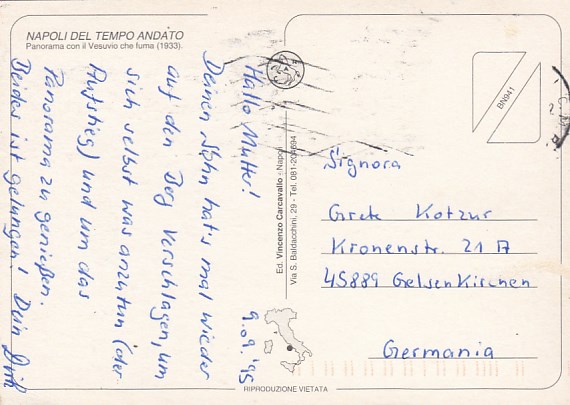 NAPOLI DEL TEMPO ANDATO
Panorama con il Vesuvio che fuma (1933).
9.09.'95
Hallo Mutter!
Deinen Sohn hat's mal wieder
auf den Berg verschlagen, um
sich selbst was anzutun (der
Aufstieg) und um das
Panorama zu genießen.
Beides ist gelungen! Dein Dirk
Ed. Vincenzo Carcavallo - Napoli
Via S. Baldacchini, 29 - Tel. 081-204694
BN941
Signora
Grete Kotzur
Kronenstr. 21 A
45889 Gelsenkirchen
Germania
RIPRODUZIONE VIETATA